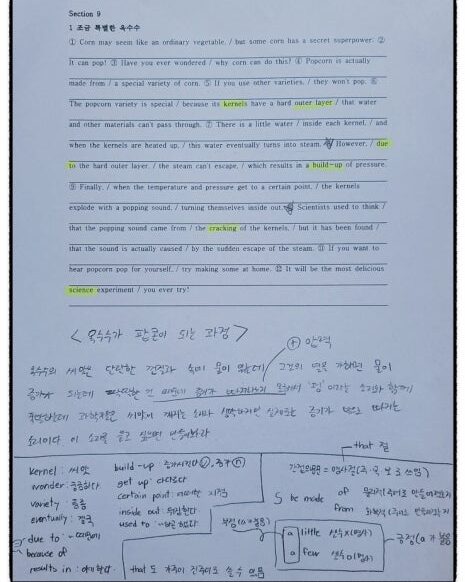 Section 9
1 조금 특별한 옥수수
① Corn may seem like an ordinary vegetable, / but some corn has a secret superpower. ②
It can pop! ③ Have you ever wondered / why corn can do this? ④ Popcorn is actually
made from / a special variety of corn. ⑤ If you use other varieties, / they won't pop. ⑥
The popcorn variety is special / because its kernels have a hard outer layer / that water
and other materials can't pass through. ⑦ There is a little water / inside each kernel, / and
when the kernels are heated up, / this water eventually turns into steam. However, / due
to the hard outer layer, / the steam can't escape, / which results in a build-up of pressure.
⑨ Finally, / when the temperature and pressure get to a certain point, / the kernels
explode with a popping sound, / turning themselves inside out. Scientists used to think /
that the popping sound came from / the cracking of the kernels, / but it has been found /
that the sound is actually caused / by the sudden escape of the steam. ⑪ If you want to
hear popcorn for yourself, / try making some at home. ⑫ It will be the most delicious
science experiment / you ever try!
< 옥수수가 팝콘이 되는 과정 >
+ 압력
옥수수의 씨앗은 단단한 겉과 속에 물이 있는데 그것의 열을 가하면 물이
증기가 되는데 소리와 함께
과학자들은 씨앗이 소리라 실제로는 증기가 밖으로
소리이다 이 소리를 듣고 싶으면 만들어봐라
kernel : 씨앗
build-up 증가시킨다 ⓥ, 증가 ⓝ
wonder : 궁금하다
get up : 다다르다
variety : 종류
certain point : 어떠한 지점
eventually : 결국
inside out : 뒤집힌다
due to : ~때문에
used to : ~하곤 했다
because of
results in : 야기한다
that 절
간접의문문 = 명사절 (주 목 보 쓰임)
S be made of 물리적
from 화학적
부정
a little 셀수X (명사)
a few 셀수O (명사)
긍정
that도 가주어 진주어로 쓸 수 있음